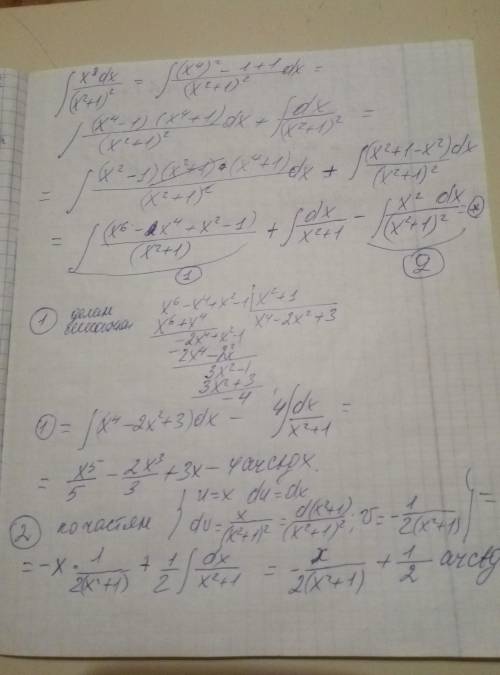 ∫ x⁸dx/(x²+1)² = ∫ ((x⁴)² − 1 + 1)/(x²+1)² dx =
∫ (x⁴−1)(x⁴+1)/(x²+1)² dx + ∫ dx/(x²+1)² =
= ∫ (x²−1)(x²+1)·(x⁴+1)/(x²+1)² dx + ∫ (x²+1−x²)dx/(x²+1)²
= ∫ (x⁶ − x⁴ + x² − 1)/(x²+1) + ∫ dx/(x²+1) − ∫ x² dx/(x²+1)² =
① 2
① делим x⁶−x⁴+x²−1 | x²+1
x⁶+x⁴ x⁴−2x²+3
−2x⁴+x²−1
−2x⁴−2x²
3x²−1
3x²+3
−4
① = ∫(x⁴−2x²+3)dx − 4∫ dx/(x²+1) =
= x⁵/5 − 2x³/3 + 3x − 4arctgx.
② по частям { u=x du=dx
dv = x/(x²+1)² = d(x²+1)/(x²+1)²; v = −1/2(x²+1) } =
= −x · 1/2(x²+1) + 1/2 ∫ dx/(x²+1) = −x/2(x²+1) + 1/2 arctg